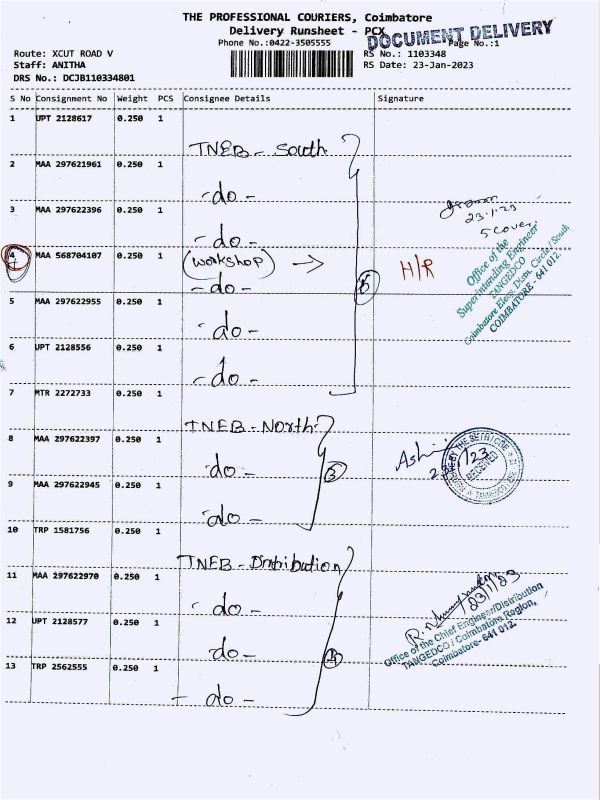 THE PROFESSIONAL COURIERS, Coimbatore
Delivery Runsheet - PCX
DOCUMENT DELIVERY
Phone No.:0422-3505555
Page No.:1
Route: XCUT ROAD V
RS No.: 1103348
Staff: ANITHA
RS Date: 23-Jan-2023
DRS No.: DCJB110334801
S No Consignment No Weight PCS Consignee Details Signature
1 UPT 2128617 0.250 1
TNEB - South
2 MAA 297621961 0.250 1
- do -
3 MAA 297622396 0.250 1
- do -
23.1.23
5 Cover
4 MAA 568704107 0.250 1
(workshop) →
- do -
5
H/R
Office of the
Superintending Engineer
TANGEDCO
Coimbatore Elec. Distn. Circle / South
COIMBATORE - 641 012.
5 MAA 297622955 0.250 1
- do -
6 UPT 2128556 0.250 1
- do -
7 MTR 2272733 0.250 1
TNEB - North
8 MAA 297622397 0.250 1
- do -
3
9 MAA 297622945 0.250 1
- do -
10 TRP 1581756 0.250 1
TNEB - Distribution
11 MAA 297622970 0.250 1
- do -
23/1/23
Office of the Chief Engineer/Distribution
TANGEDCO / Coimbatore Region,
Coimbatore - 641 012.
12 UPT 2128577 0.250 1
- do -
4
13 TRP 2562555 0.250 1
- do -